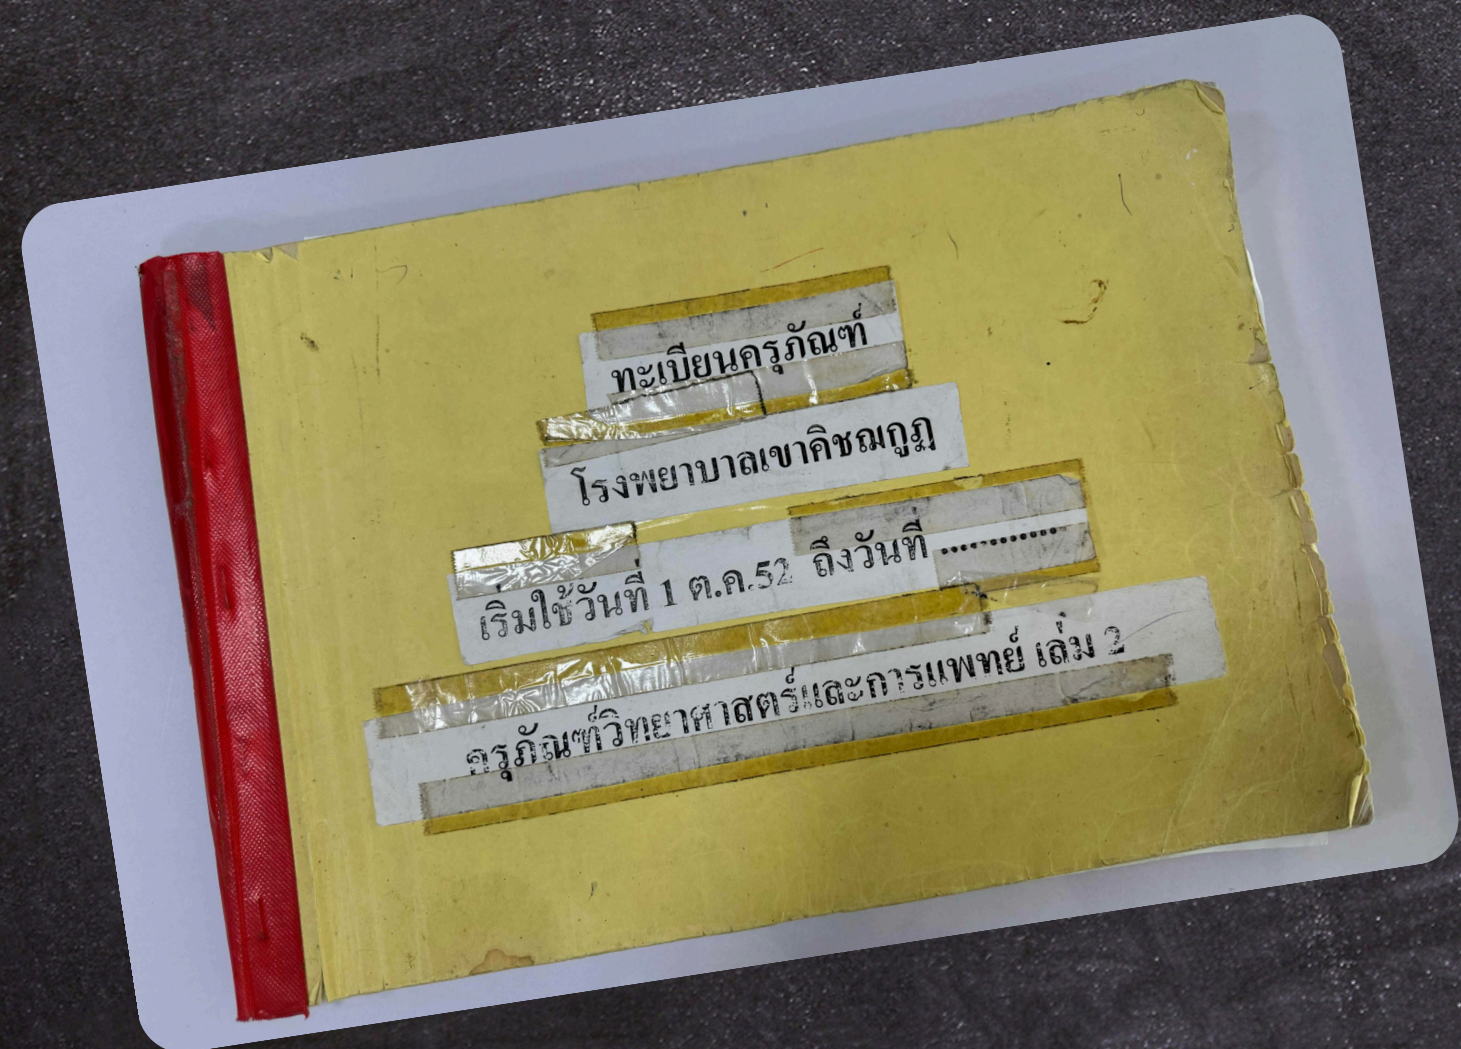 ทะเบียนครุภัณฑ์
โรงพยาบาลเขาคิชฌกูฏ
เริ่มใช้วันที่ 1 ต.ค.52 ถึงวันที่ ............
ครุภัณฑ์วิทยาศาสตร์และการแพทย์ เล่ม 2